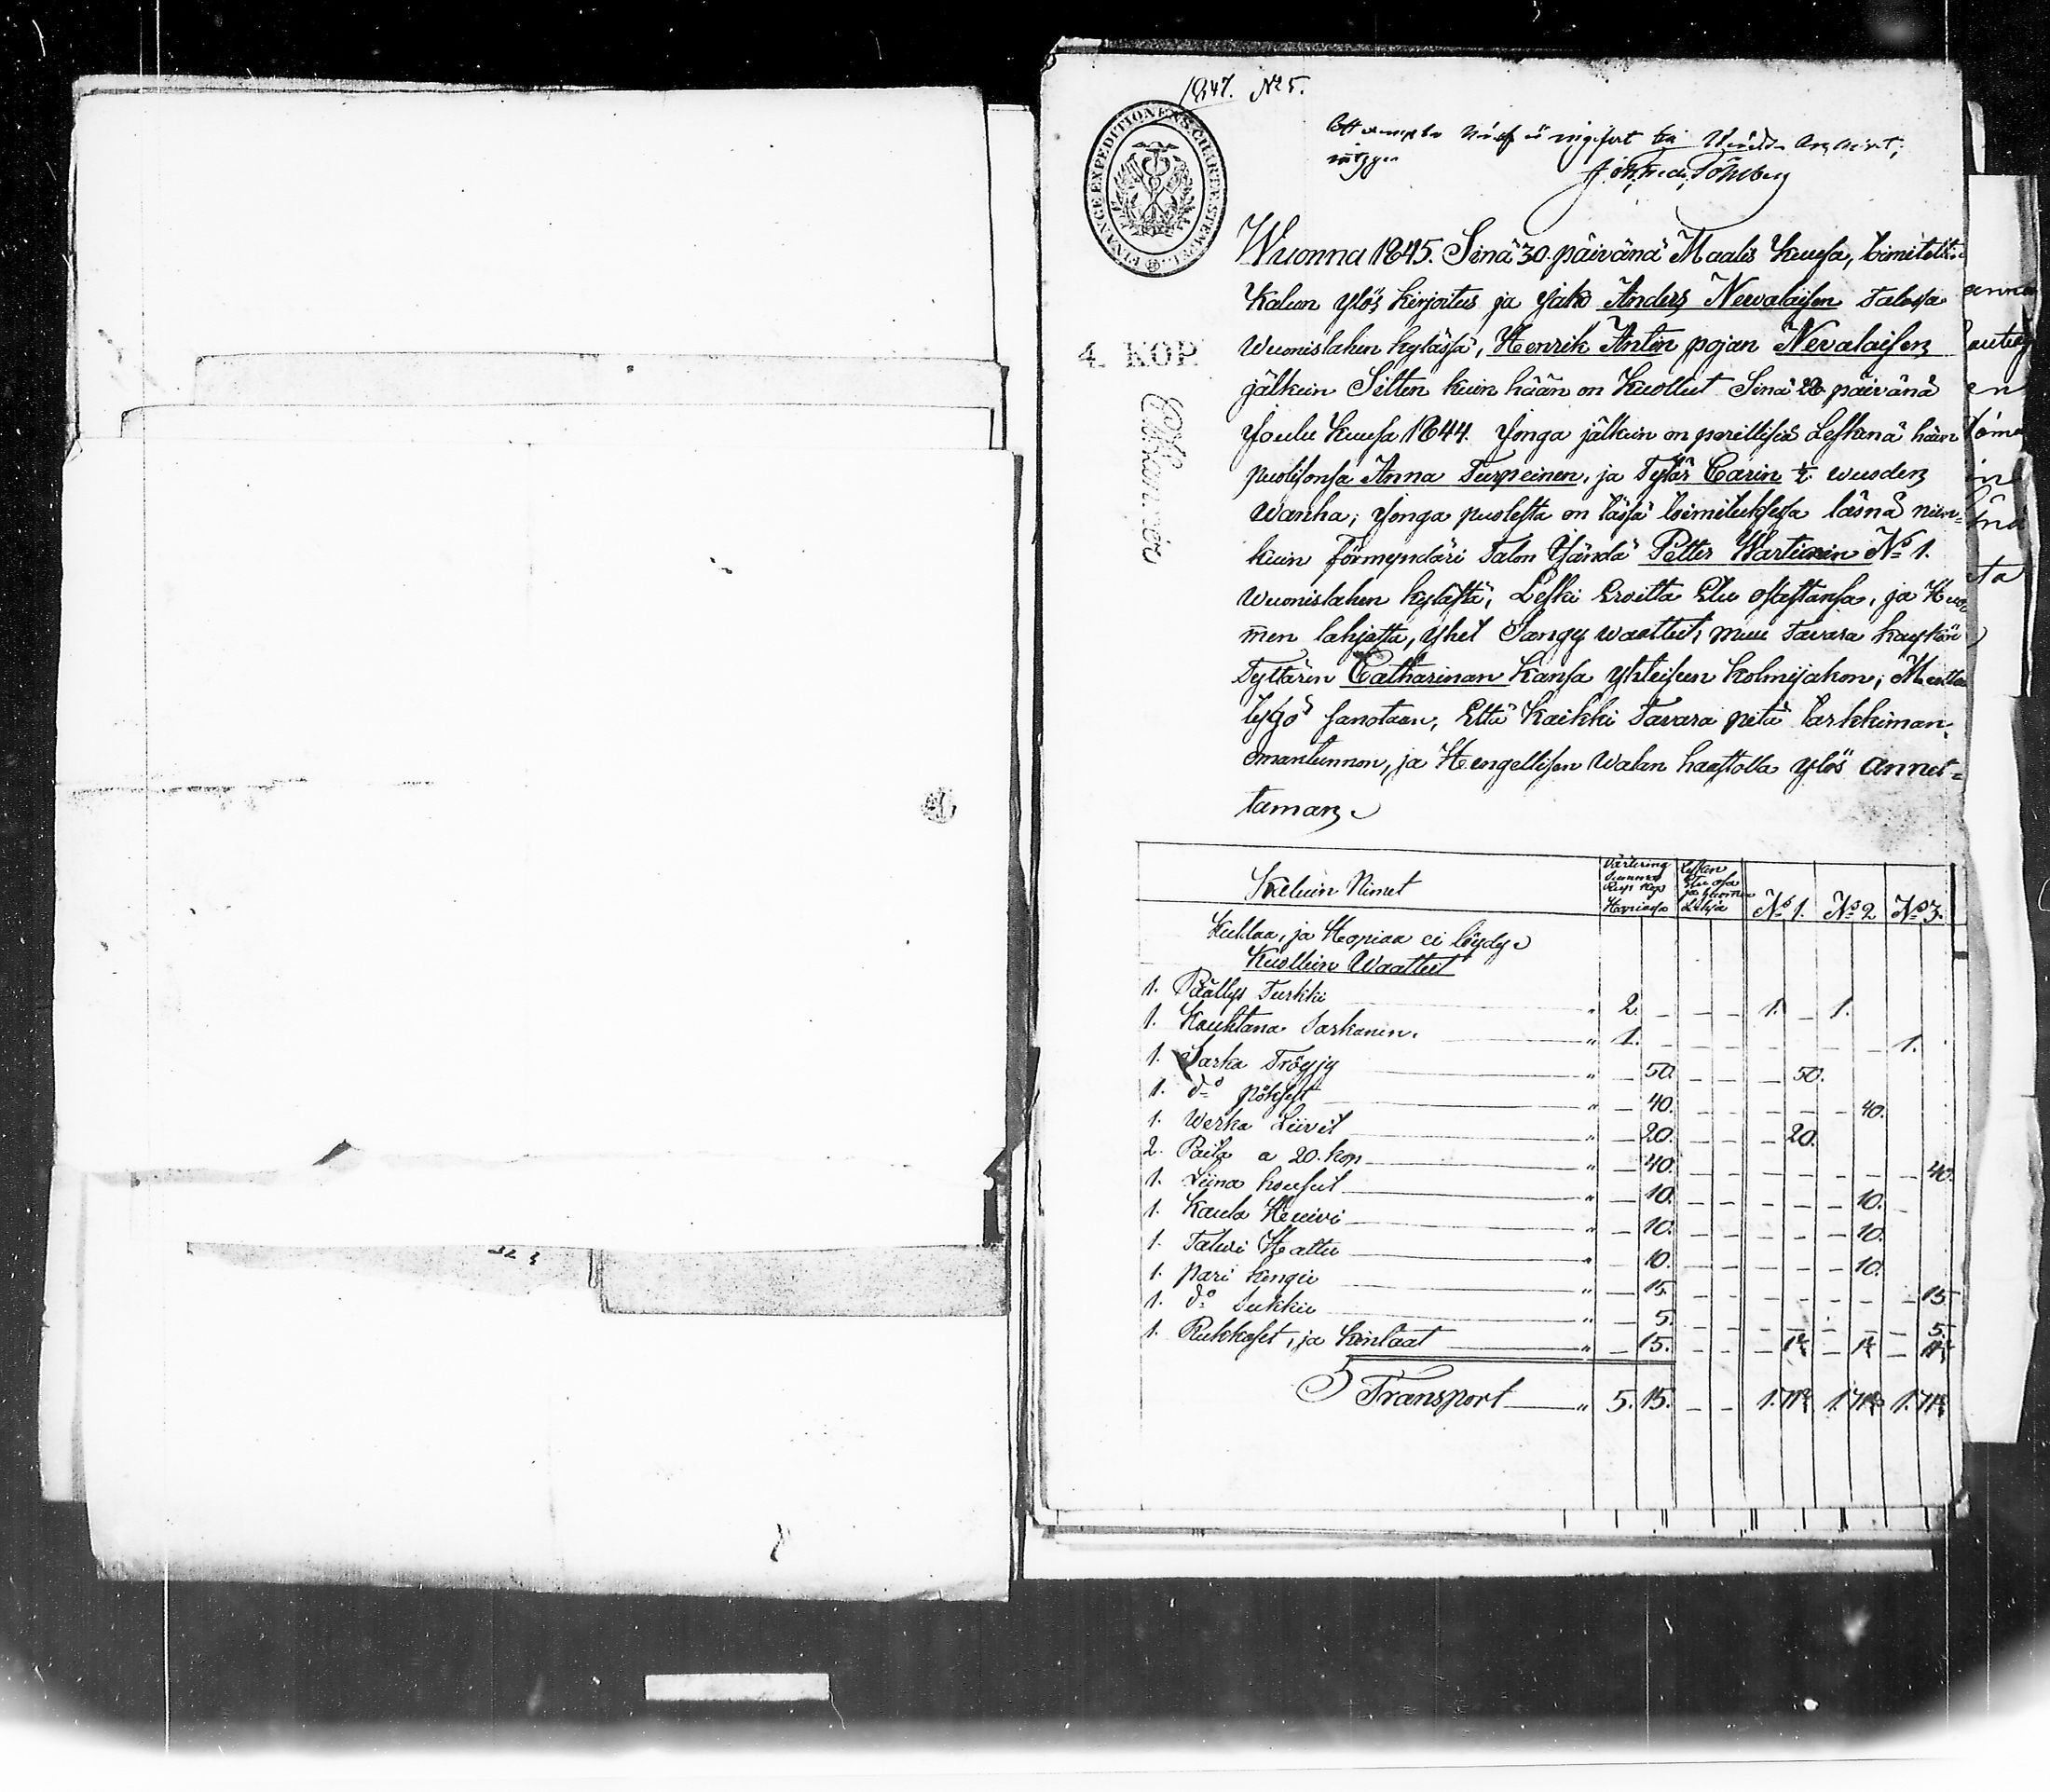 1847. No 5.
FINANCE EXPEDITIONENS CHARTÆ STEMPEL
4. KOP
Wuonna 1845. Sinä 30. päivänä Maalis kuusa, toimitetti
Kalun ylös kirjoitus ja Jako Anders Newalaisen Talosa
Wuonislahen kylässä, Henrik Antin pojan Nevalaisen
jälkein Sitten kuin hään on Kuollut Sinä päivänä
Joulu kuusa 1844. Jonga jälkein on perillisiä Leskenä hänen
puolisonsa Anna Turpeinen, ja Tytär Carin ½ wuoden
Wanha; Jonga puolesta on tässä toimituksesa läsnä niin=
kuin förmyndäri Talon Isändä Petter Wartiain No 1.
Wuonislahen kylästä, Leski Eroitta Etu osastansa, ja Huo
men lahjasta, yhet Sängy waatteet, muu Tavara
Tyttären Catharinan Kansa yhteiseen kolmijakon;
sanotaan, Että Kaikki Tavara pitä tarkkiman
omantunnon, ja Hengellisen Walan haastolla ylös annet=
taman
Kaluin Nimet
Värdering Summa Rup Kop Hopiassa
Lesken Etu osa ja Huomen Lahja
No 1. No 2 No 3.
Kultaa, ja Hopiaa ei löydy
Kuolluin Waatteet
1. Päällys Turkki " 2. _ _ _ 1. _ 1.
1. Kauhtana Sarkanen. " 1. _ _ _ _ _ _ _ 1.
1. Sarka Tröyjy " _ 50. _ _ _ 50.
1. do pöksyt " _ 40. _ _ _ _ _ 40.
1. Werka Liivit " _ 20. _ _ _ 20.
2. Paita a 20. kop " _ 40. _ _ _ _ _ _ _ 40.
1. Liina housut " _ 10. _ _ _ _ _ 10. _
1. Kaula Huivi " _ 10. _ _ _ _ _ 10.
1. Talvi Hattu " _ 10. _ _ _ _ _ 10.
1. pari kengii " _ 15. _ _ _ _ _ _ _ 15
1. do sukkii " _ 5. _ _ _ _ _ _ _ 5.
1. Rukkaset, ja Kintaat " _ 15.
Transport " 5. 15.